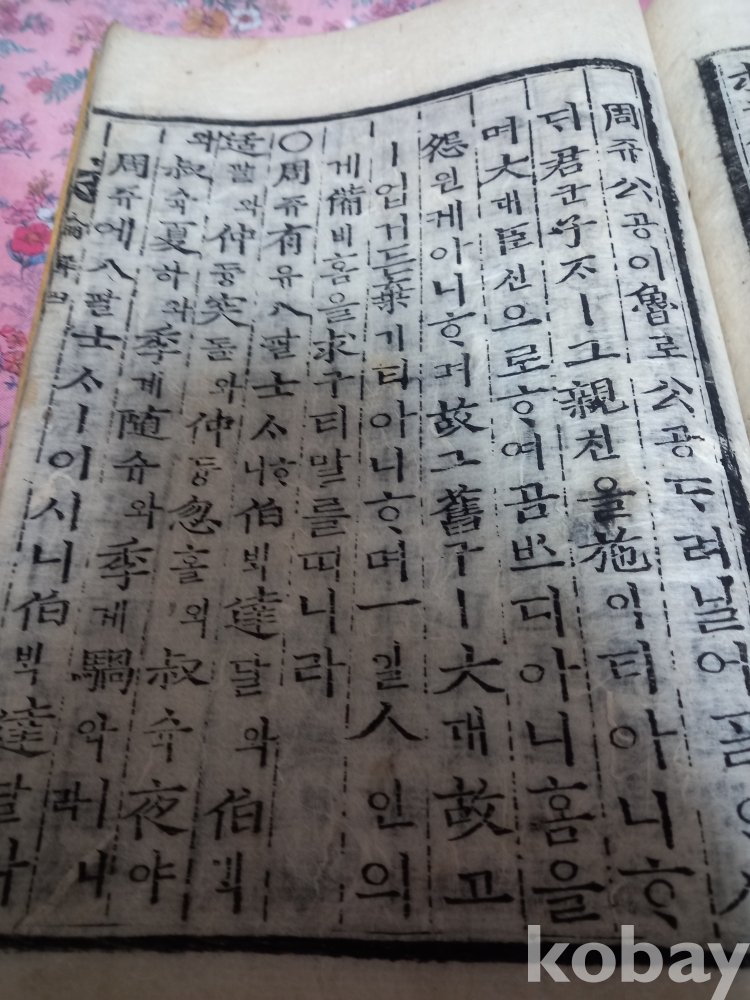 周쥬公공이魯로公공ᄃᆞ려닐어ᄀᆞᆯᄋᆞ
ᄃᆡ君군子ᄌᆞㅣ그親친을施이티아니ᄒᆞ
며大대臣신으로ᄒᆞ여곰ᄡᅳ디아니홈을
怨원케아니ᄒᆞ며故고舊구ㅣ大대故고
ㅣ업거든棄기티아니ᄒᆞ며一일人인의
게備비홈을求구티말를ᄯᅵ니라
○周쥬有유八팔士ᄉᆞᄒᆞ니伯ᄇᆡᆨ達달와伯ᄇᆡᆨ
适괄와仲듕突돌와仲듕忽홀와叔슉夜야
와叔슉夏하와季계隨슈와季계騧와
周쥬에八팔士ᄉᆞㅣ이시니伯ᄇᆡᆨ達달와
論解四
kobay